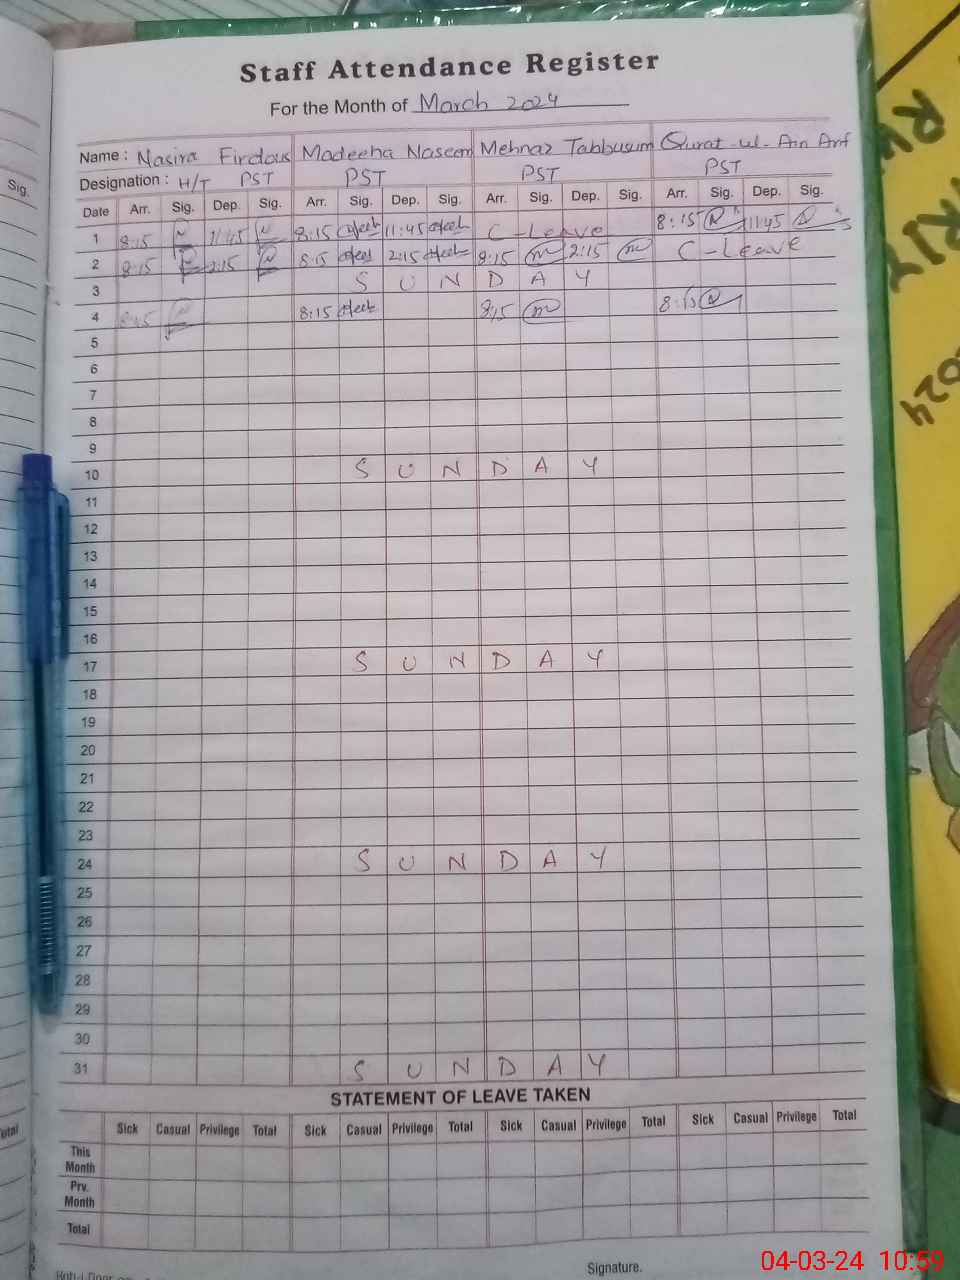 Staff Attendance Register
For the Month of March 2024
Sig.
Name : Nasira Firdous Madeeha Naseem Mehnaz Tabbusum Qurat-ul-Ain Arif
Designation : H/T PST PST PST PST
Date Arr. Sig. Dep. Sig. Arr. Sig. Dep. Sig. Arr. Sig. Dep. Sig. Arr. Sig. Dep. Sig.
1 8:15 11:45 8:15 11:45 C-Leave 8:15 11:45
2 8:15 2:15 8:15 2:15 8:15 2:15 C-Leave
3 S U N D A Y
4 8:15 8:15 8:15 8:15
5
6
7
8
9
10 S U N D A Y
11
12
13
14
15
16
17 S U N D A Y
18
19
20
21
22
23
24 S U N D A Y
25
26
27
28
29
30
31 S U N D A Y
STATEMENT OF LEAVE TAKEN
Sick Casual Privilege Total Sick Casual Privilege Total Sick Casual Privilege Total Sick Casual Privilege Total
This Month
Prv. Month
Total
Signature.
2024
04-03-24 10:59